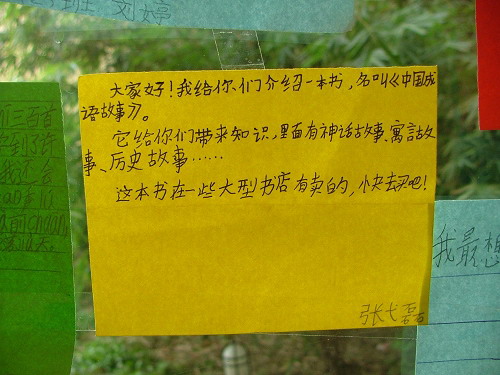 班 刘婷
大家好！我给你们介绍一本书，名叫《中国成
语故事》。
它给你们带来知识，里面有神话故事、寓言故
事、历史故事……
这本书在一些大型书店有卖的，快去买吧！
张弋磊
我最想